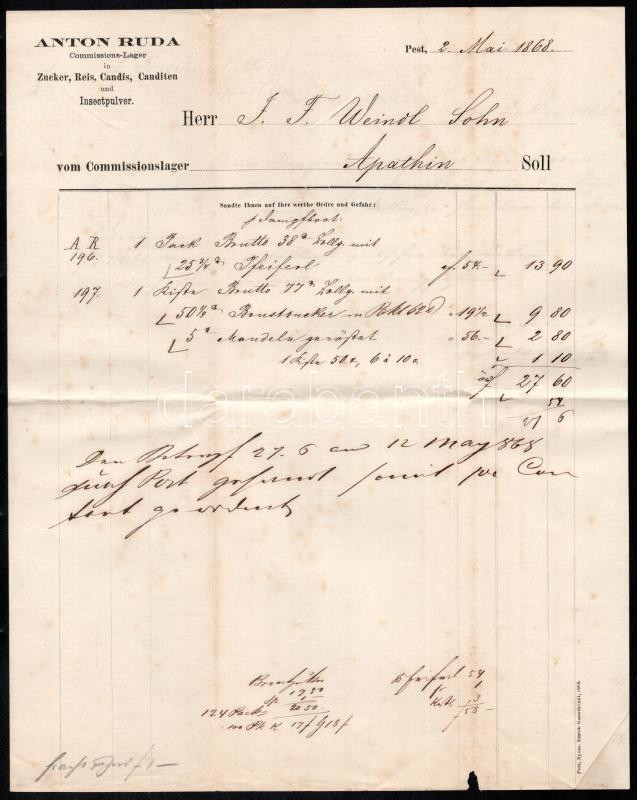 ANTON RUDA
Commissions-Lager
in
Zucker, Reis, Candis, Canditen
und
Insectpulver.
Pest, 2. Mai 1868.
Herr J. F. Weindl Sohn
vom Commissionslager Apathin Soll
Sandte Ihnen auf Ihre werthe Ordre und Gefahr:
Dampfboot:
A R 1 Pack Brutto 38 Zollg. mit
196. 25 3/4 Pfeiferl 54.- 13 90
197. 1 Kiste Brutto 77 Zollg. mit
50 1/4 Brustzucker 19 1/2 9 80
5 Mandeln geröstet 56.- 2 80
1 Kiste 50, 6 à 10 1 10
27 60
54
27 6
darabanth
Den Betrag 27.6 am 12 May 868
Post gesandt somit pr Con
19,50
124 Pack 20 50
17 f 913 f
Pfeiferl 54
1
3
58-